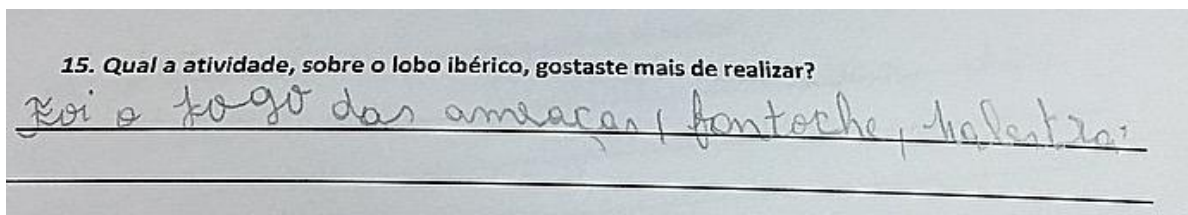 15. Qual a atividade, sobre o lobo ibérico, gostaste mais de realizar?
Foi o jogo das ameaças, fantoche, palestra.